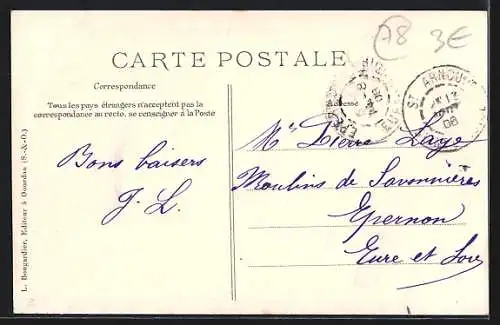 A8 3€
CARTE POSTALE
Correspondance
Adresse
Tous les pays étrangers n'acceptent pas la
correspondance au recto, se renseigner à la Poste
Bons baisers
J. L.
Mr Pierre Laye
Moulins de Savonnières
Epernon
Eure et Loir
ST ARNOU
08
L. Bougardier, Editeur à Dourdan (S.-&-O.)